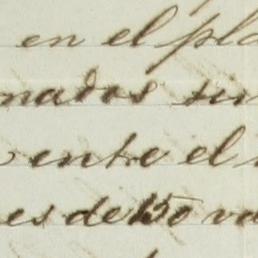 en el pla
nados sin
ente el
es de 150 va